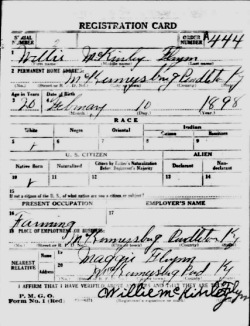 REGISTRATION CARD
SERIAL NUMBER
ORDER NUMBER A444
1 Willie McKinley Flynn
2 PERMANENT HOME ADDRESS
McKinneysburg Pendleton Ky
Age in Years
Date of Birth
20 February 10 1898
RACE
White
Negro
Oriental
Indian
5 ✓
U. S. CITIZEN
ALIEN
Native Born
Naturalized
Citizen by Father's Naturalization Before Registrant's Majority
Declarant
Non-declarant
10 ✓
15 If not a citizen of the U. S., of what nation are you a citizen or subject?
PRESENT OCCUPATION
EMPLOYER'S NAME
16 Farming
18 PLACE OF EMPLOYMENT OR BUSINESS
McKinneysburg Pendleton Ky
NEAREST RELATIVE
Name 19 Maggie Flynn
Address 20 McKinneysburg Pend Ky
I AFFIRM THAT I HAVE VERIFIED
P. M. G. O.
Form No. 1 (Red)
Willie McKinley Flynn